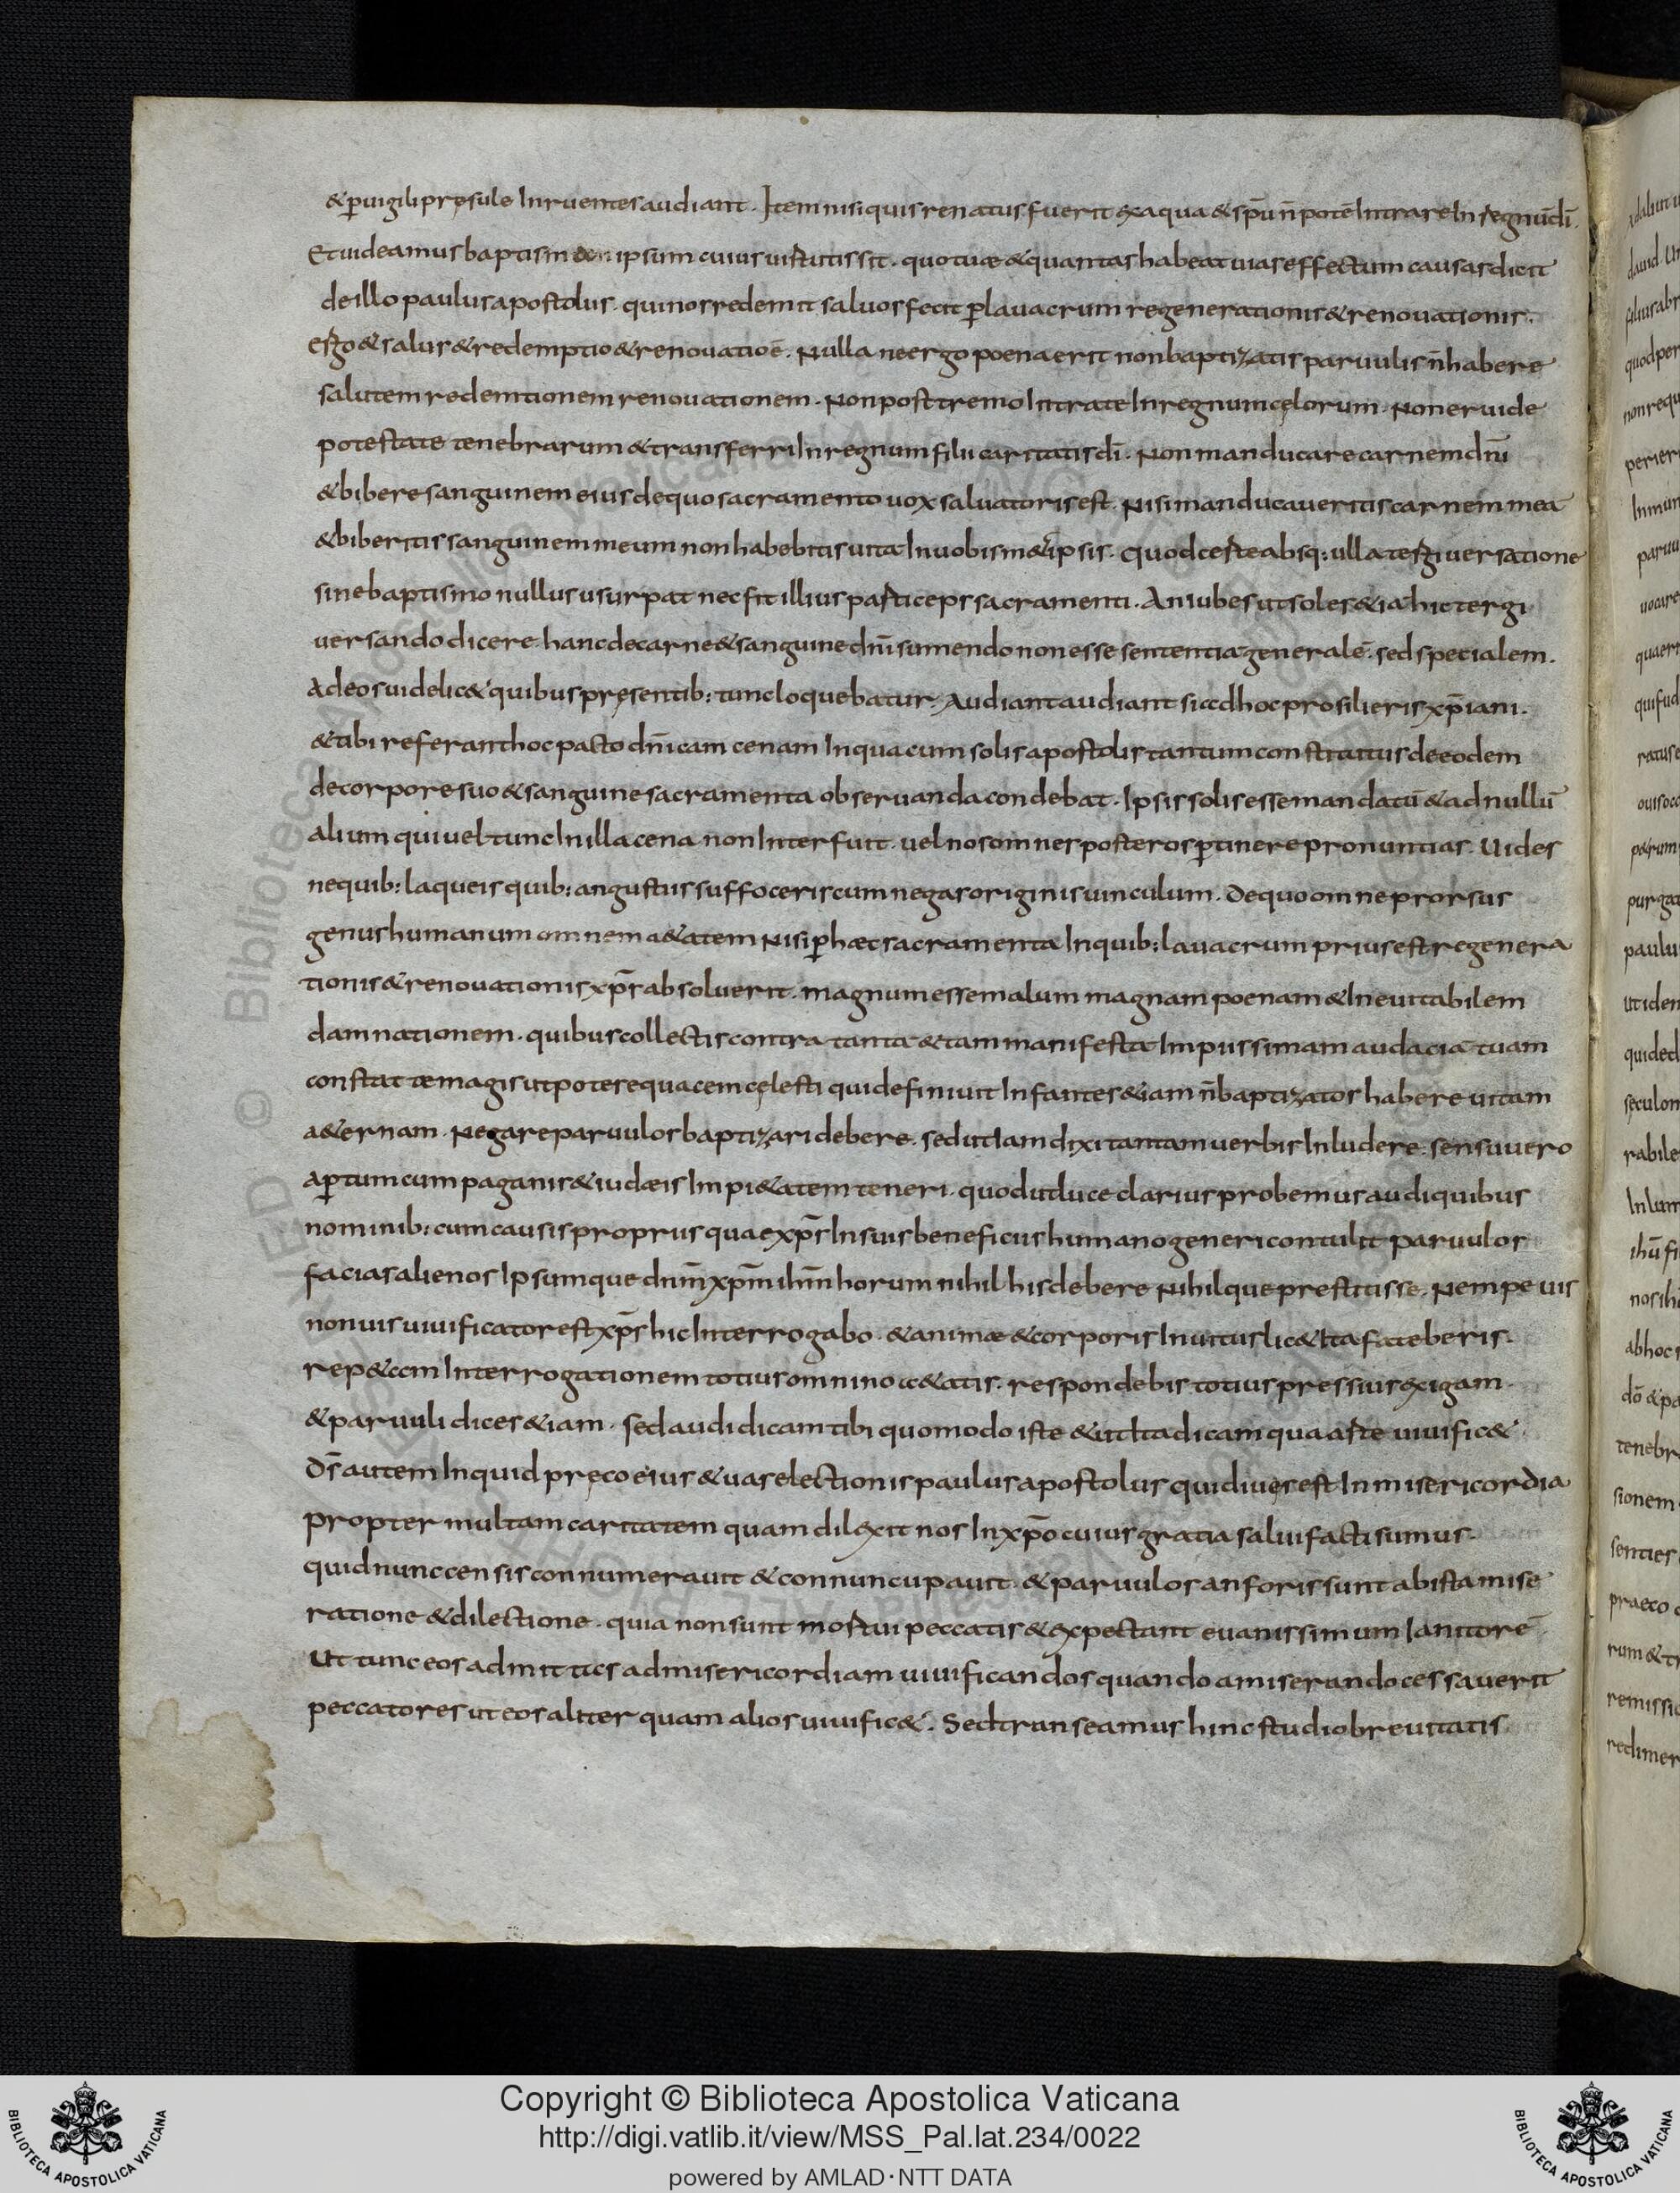 & ꝑuigili pręsule Inruentes audiant. Item nisi quis renatus fuerit ex aqua & sp̄u n̄ potē Intrare In regnū dī.
Et uideamus baptismum ipsum cuius uirtutis sit. quot uiæ & quantas habeat uias effectum causas dicit
de illo paulus apostolus. qui nos redemit saluos fecit ꝑ lauacrum regenerationis & renouationis.
ergo & salus & redemptio & renouatio ē. Nulla ne ergo poena erit non baptizatis paruulis n̄ habere
salutem redemtionem renouationem. Non posttremo Intrate In regnum cęlorum. Non erui de
potestate tenebrarum & transferri In regnum filii caritatis dī. Non manducare carnem dn̄i
& bibere sanguinem eius de quo sacramento uox saluatoris est. Nisi manducaueritis carnem meā
& biberitis sanguinem meum non habebitis uitā In uobism&ipsis. Quod certe absq; ulla tergiuersatione
sine baptismo nullus usurpat nec fit illius particeps sacramenti. An iubes ut soles &iā hic tergi
uersando dicere hanc de carne & sanguine dn̄i sumendo non esse sententiā generalē. sed specialem.
Ad eos uidelic& quibus pręsentib; tunc loquebatur. Audiant audiant si ad hoc prosilieris xp̄iani.
& tibi referant hoc pacto dn̄icam cenam In qua cum solis apostolis tantum constitutus de eodem
de corpore suo & sanguine sacramenta obseruanda condebat. Ipsis solis esse mandatū & ad nullū
alium qui uel tunc In illa cena non Interfuit. uel nos omnes posteros ꝑtinere pronuntias. Uides
ne quib; laqueis quib; angustiis suffoceris cum negas originis uinculum. De quo omne prorsus
genus humanum omnem a&atem Nisi ꝑ hæc sacramenta In quib; lauacrum prius est regenera
tionis & renouationis xp̄s absoluerit. magnum esse malum magnam poenam & Ineuitabilem
damnationem. quibus collectis contra tantā & tam manifestā Impiissimam audaciā tuam
constat te magis utpote sequacem cęlesti qui definiuit Infantes &iam n̄ baptizatos habere uitam
a&ernam. Negare paruulos baptizari debere. sed ut Iam dixi tantam uerbis Inludere. sensu uero
aꝑtum cum paganis & iudæis Impi&atem teneri. quod ut luce clarius probemus audi quibus
nominib; cum causis propriis quae xp̄s In suis beneficiis humano generi contulit paruulos
facias alienos Ipsumque dn̄m xp̄m ihm̄ horum nihil his debere Nihilque prestitisse. Nempe uis
non uis uiuificator est xp̄s hic Interrogabo. & animæ & corporis Inuitus lic& Ita fateberis.
rep&am Interrogationem totius omnino æ&atis. respondebis totius pressius exigam.
& paruuli dices &iam. sed audi dicam tibi quomodo iste & ut Ita dicam qua arte uiuific&
Ds̄ autem Inquid pręco eius & uas electionis paulus apostolus qui diues est In misericordia
propter multam caritatem quam dilexit nos In xp̄o cuius gratia salui facti sumus.
quid nunc censis connumerauit & connuncupauit. & paruulos an foris sunt ab ista mise
ratione & dilectione. quia non sunt mortui peccatis & expectant euanissimum Ianitorē
Ut tunc eos admittas ad misericordiam uiuificandos quando a miserando cessauerit
peccatores ut eos aliter quam alios uiuific&. Sed transeamus hinc studio breuitatis
Copyright © Biblioteca Apostolica Vaticana
http://digi.vatlib.it/view/MSS_Pal.lat.234/0022
powered by AMLAD · NTT DATA
BIBLIOTECA APOSTOLICA VATICANA
BIBLIOTECA APOSTOLICA VATICANA